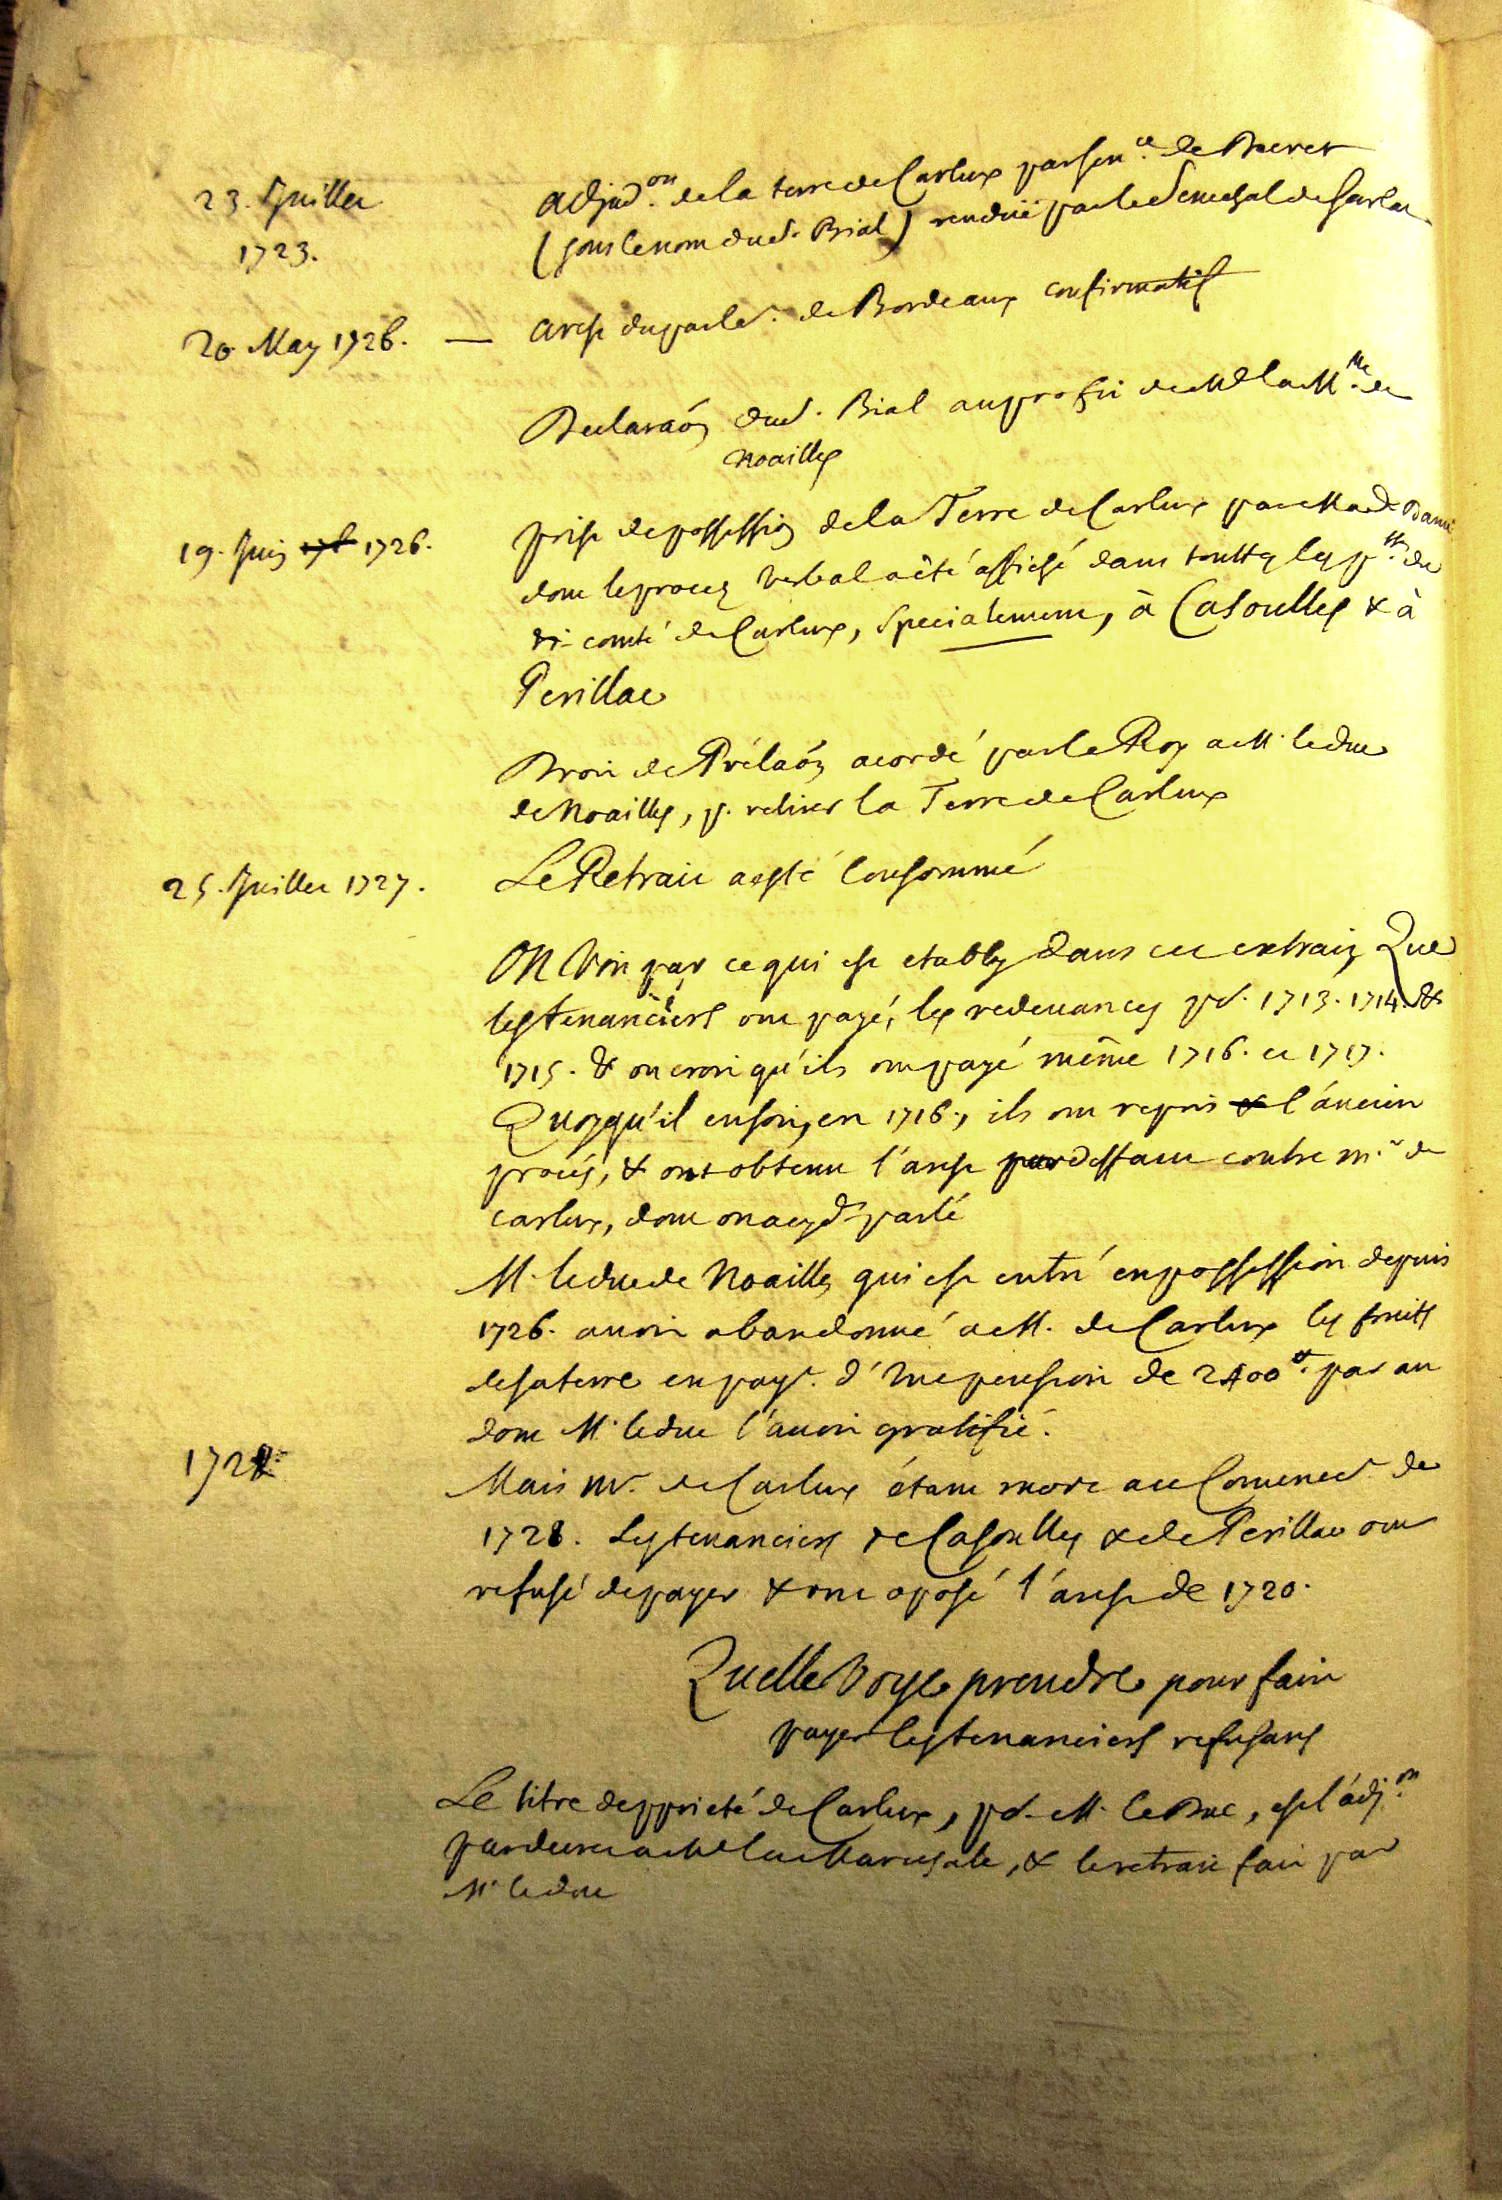 23. Juillet
1723.
adjud.on de la terre de Carlux par sen.ce de Decret
(sous le nom dud. Brial) renduë par le Senechal de Sarlat
20 May 1726. — arest du parle.t de Bordeaux confirmatif
Declaraon dud. Bial au profit de Mde la M.lle de
Noailles
19. Juin 1726. prise de possession de la Terre de Carlux par Mad. Dame
dont le procez verbal a êté affiché dans touttes les p.sses du
vi-comté de Carlux, specialement, à Casoulles & à
Perillac
Droit de Prélaon acordé par le Roy a M. le duc
de Noailles, p. retirer la Terre de Carlux
25. Juillet 1727. Le Retrait a esté consommé
ON Voit par ce qui est etably dans cet extrait, Que
les tenanciers ont payé, les redevances pd. 1713. 1714. &
1715. & on croit qu'ils ont payé même 1716. et 1717.
Quoyqu'il en soit, en 1718., ils ont repris l'ancien
procés, & ont obtenu l'arest par deffaut contre m.r de
carlux, dont on a cyd. parlé
M. le duc de Noailles qui est entré en possession depuis
1726. avoit abandonné a M. de Carlux les fruits
de sa terre en pay.t d'une pension de 2400.tt par an
dont M. le duc l'avoit gratifié.
1728
Mais mr. de Carlux étant mort au Comencet. de
1728. Les tenanciers de Casoulles & de Perillac ont
refusé de payer & ont oposé l'arest de 1720.
Quelle Voye prendre pour faire
payer les tenanciers refusans
Le titre de pprieté de Carlux, pd. M. le Duc, est l'adj.on
par decret a Mde la Marechale, & le retrait fait par
M. le duc